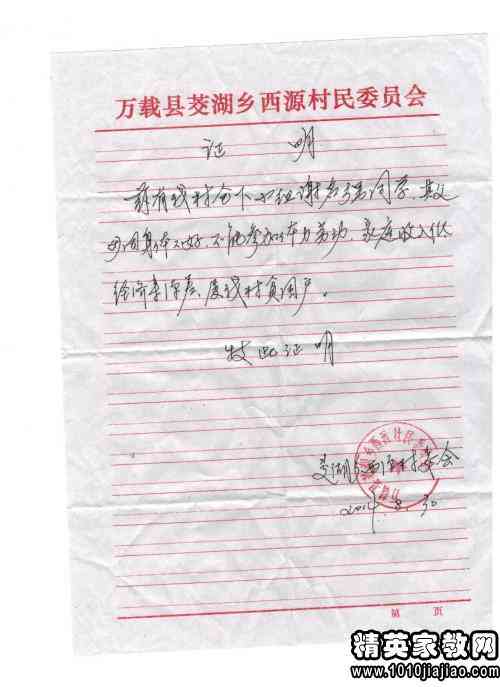 万载县茭湖乡西源村民委员会
证 明
兹有我村合下小组谢 同学,其父
母因身体不好,不能参加体力劳动,家庭收入低
经济来源差,属我村贫困户。
特此证明
茭湖乡西源村委会
8.30
第 页
精英家教网
www.1010jiajiao.com